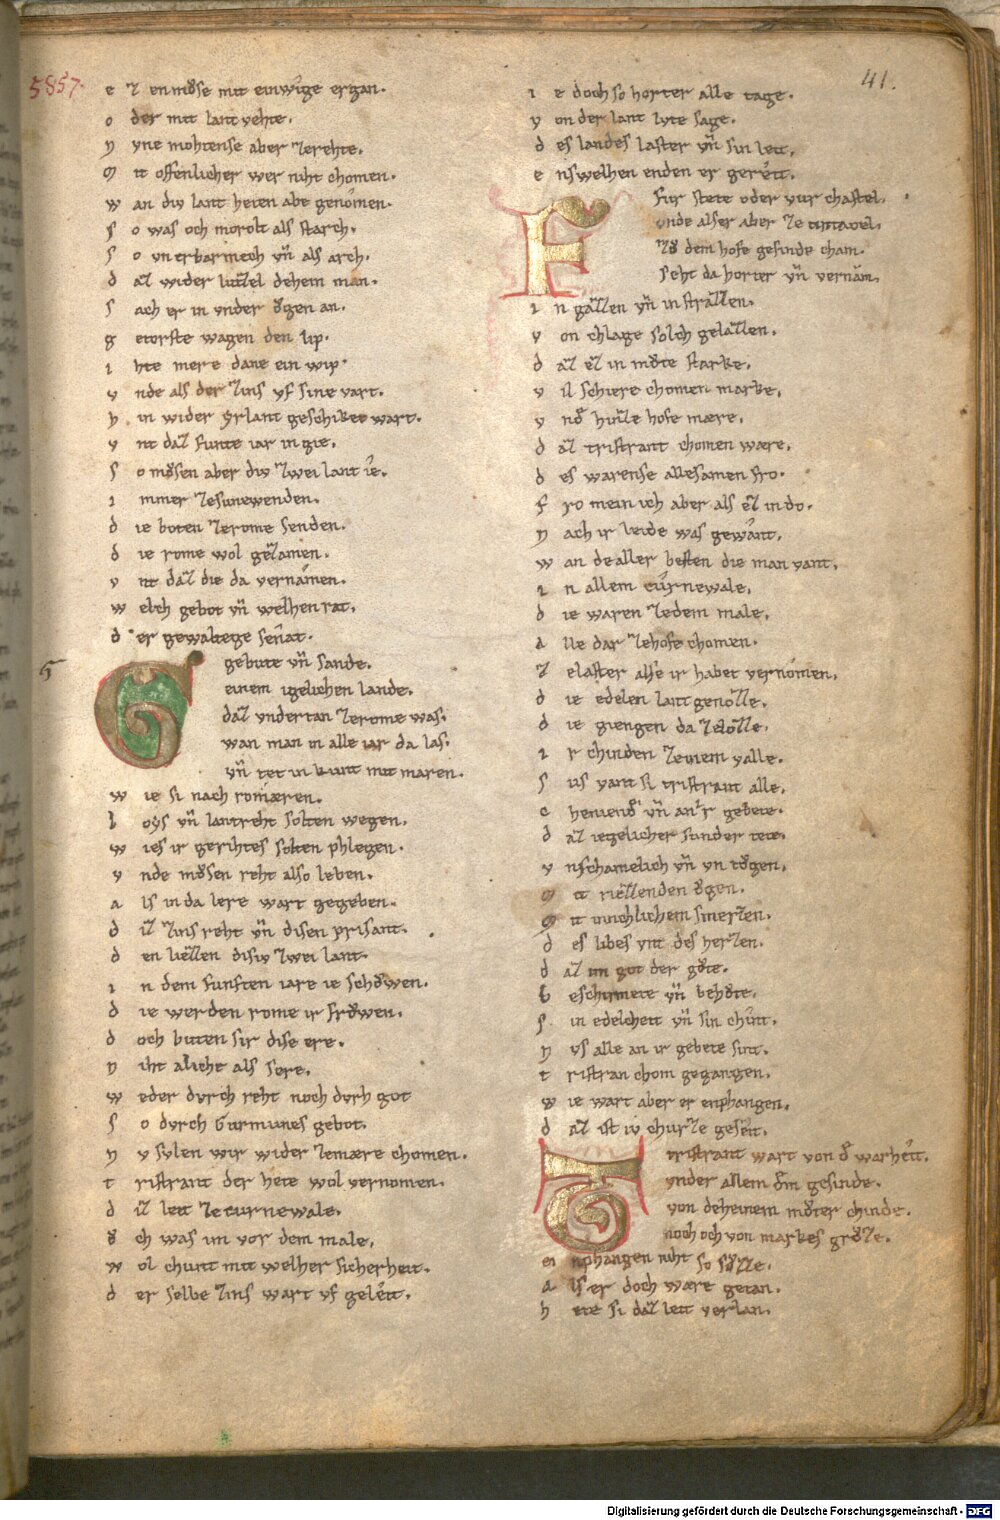 5857.
41.
e z enmůse mit einwige ergan.
o der mit lantvehte.
n yne mohtense aber zerehte.
m it offenlicher wer niht chomen.
w an div lant heten abe genomen.
s o was och morolt als starch.
s o vnerbarmech vn̄ als arch.
d az wider luzzel dehein man.
s ach er in vnder ǒgen an.
g etorste wagen den lip.
i hte mere dane ein wip.
v nde als der zins vf sine vart.
h in wider yrlant geschiket wart.
v nt daz funte iar in gie.
s o můsen aber div zwei lant ie.
i mmer zesunewenden.
d ie boten zerome senden.
d ie rome wol gezamen.
v nt daz die da vernamen.
w elch gebot vn̄ welhen rat.
d er gewaltege senat.
G gebute vn̄ sande.
einem igelichen lande.
daz vndertan zerome was.
wan man in alle iar da las.
vn̄ tet in kunt mit maren.
w ie si nach romæren.
l oys vn̄ lantreht solten wegen.
w ies ir gerihtes solten phlegen.
v nde můsen reht also leben.
a ls in da lere wart gegeben.
d iz zins reht vn̄ disen prisant.
d en liezzen disiv zwei lant.
i n dem funften iare ie schǒwen.
d ie werden rome ir frǒwen.
d och buten sir dise ere.
n iht alicht als sere.
w eder dvrch reht noch dvrh got
s o dvrch Gurmunes gebot.
n v svlen wir wider zemære chomen.
t ristrant der hete wol vernomen.
d iz leit ze curnewale.
ǒ ch was im vor dem male.
w ol chunt mit welher sicherheit.
d er selbe zins wart vf geleit.
i e doch so horter alle tage.
v on der lant lyte sage.
d es landes laster vn̄ sin leit.
e nswelhen enden er gereit.
F fur stete oder vur chastel.
vnde alser aber ze tintaioel.
zů dem hofe gesinde cham.
seht da horter vn̄ vernam.
i n gazzen vn̄ in strazzen.
v on chlage solch gelazzen.
d az ez in můte starke.
v il schiere chomen marke.
v nd̄ hinze hofe mære.
d az tristrant chomen wære.
d es warense allesamen fro.
f ro mein ich aber als ez in do.
n ach ir leide was gewant.
w an de aller besten die man vant.
i n allem curnewale.
d ie waren zedem male.
a lle dar zehofe chomen.
z elaster alse ir habet vernomen.
d ie edelen lantgenozze.
d ie giengen da zelozze.
i r chinden zeinem valle.
s us vant si tristrant alle.
c heniend̄ vn̄ an ir gebete.
d az iegelicher sunder tete.
v nschamelich vn̄ vn tǒgen.
m it riezzenden ǒgen.
m it innchlichem smerzen.
d es libes vnt des herzen.
d az im got der gůte.
b eschirmete vn̄ behůte.
s in edelcheit vn̄ sin chint.
n vs alle an ir gebete sint.
t ristran chom gegangen.
w ie wart aber er enphangen.
d az ist iv churze geseit.
T tristrant wart von d̄ warheit.
vnder allem d̄m gesinde.
von deheinem můter chinde.
noch och von markes grůze.
e nphangen niht so sůzze.
a ls er doch wære getan.
h ete si daz leit verlan.
Digitalisierung gefördert durch die Deutsche Forschungsgemeinschaft - DFG